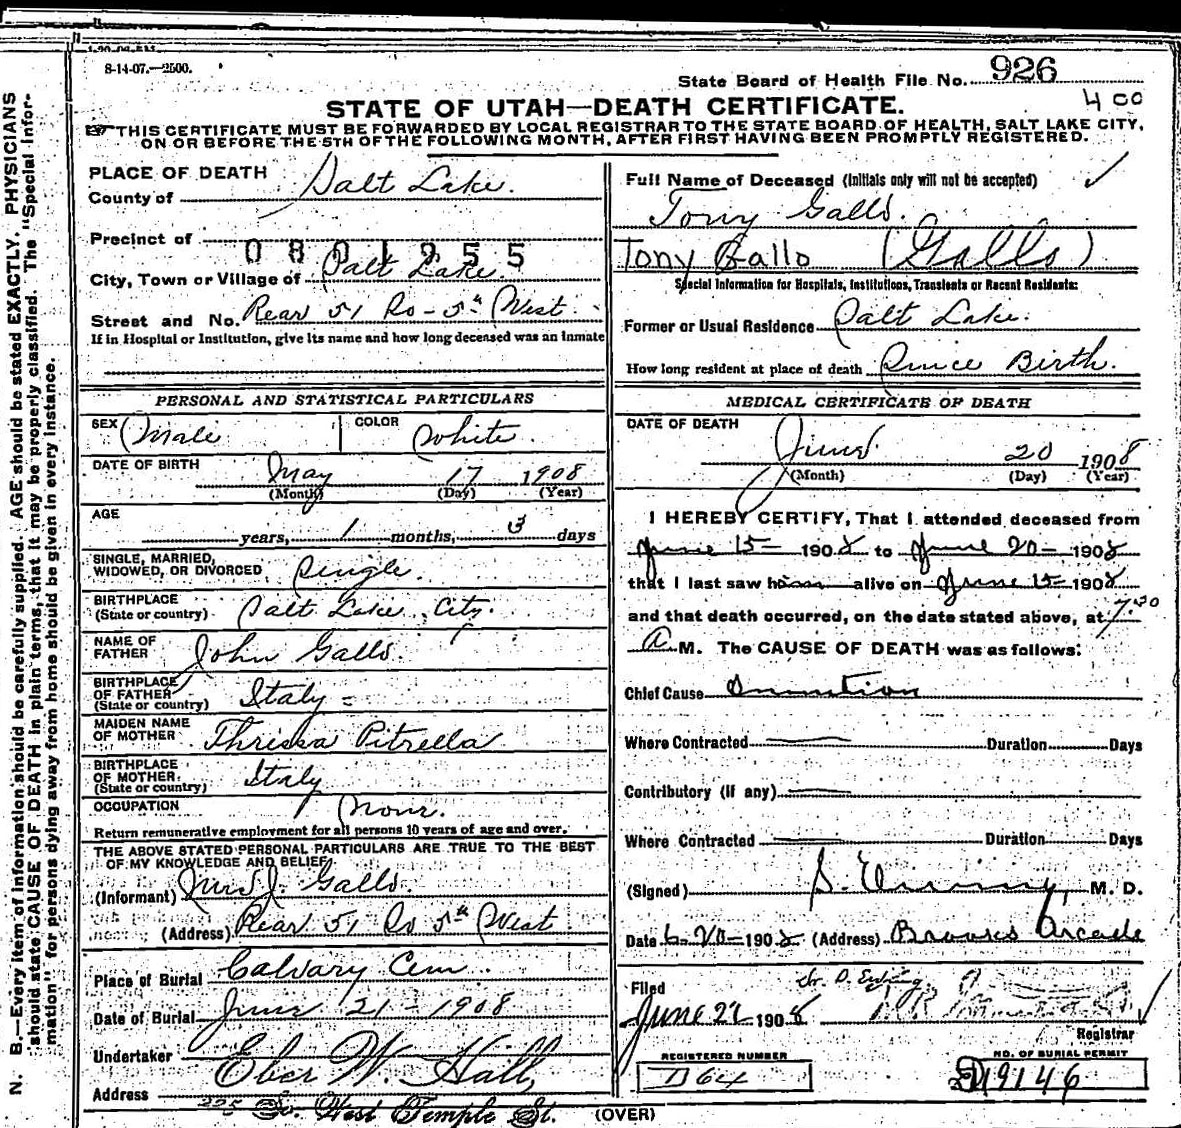 8-14-07.—2500.
State Board of Health File No. 926
400
STATE OF UTAH—DEATH CERTIFICATE.
THIS CERTIFICATE MUST BE FORWARDED BY LOCAL REGISTRAR TO THE STATE BOARD OF HEALTH, SALT LAKE CITY,
ON OR BEFORE THE 5TH OF THE FOLLOWING MONTH, AFTER FIRST HAVING BEEN PROMPTLY REGISTERED.
N. B.—Every item of information should be carefully supplied. AGE should be stated EXACTLY. PHYSICIANS
should state CAUSE OF DEATH in plain terms, that it may be properly classified. The "Special Infor-
mation" for persons dying away from home should be given in every instance.
PLACE OF DEATH
County of Salt Lake.
Precinct of
0801255
City, Town or Village of Salt Lake.
Street and No. Rear 51 So - 5th West.
If in Hospital or Institution, give its name and how long deceased was an inmate
PERSONAL AND STATISTICAL PARTICULARS
SEX Male COLOR White.
DATE OF BIRTH May 17 1908
(Month) (Day) (Year)
AGE
years, 1 months, 3 days
SINGLE, MARRIED,
WIDOWED, OR DIVORCED Single.
BIRTHPLACE
(State or country) Salt Lake City.
NAME OF
FATHER John Gallo.
BIRTHPLACE
OF FATHER
(State or country) Italy
MAIDEN NAME
OF MOTHER Thrissa Pitrella
BIRTHPLACE
OF MOTHER
(State or country) Italy
OCCUPATION None.
Return remunerative employment for all persons 10 years of age and over.
THE ABOVE STATED PERSONAL PARTICULARS ARE TRUE TO THE BEST
OF MY KNOWLEDGE AND BELIEF.
(Informant) Mrs J. Gallo.
(Address) Rear 51 So 5th West
Place of Burial Calvary Cem.
Date of Burial June 21 - 1908
Undertaker Eber W. Hall,
Address 225 So. West Temple St.
(OVER)
Full Name of Deceased (Initials only will not be accepted)
Tony Gallo.
Tony Gallo (Gallo)
Special Information for Hospitals, Institutions, Transients or Recent Residents:
Former or Usual Residence Salt Lake.
How long resident at place of death Since Birth.
MEDICAL CERTIFICATE OF DEATH
DATE OF DEATH
June 20 1908
(Month) (Day) (Year)
I HEREBY CERTIFY, That I attended deceased from
June 15 - 1908 to June 20 - 1908
that I last saw him alive on June 15 1908
and that death occurred, on the date stated above, at 7.30
A M. The CAUSE OF DEATH was as follows:
Chief Cause Inanition
Where Contracted Duration Days
Contributory (if any)
Where Contracted Duration Days
(Signed) S. Ewing, M. D.
Date 6-20-1908 (Address) Brooks Arcade
Filed
June 22 1908
Registrar
REGISTERED NUMBER
D 64
NO. OF BURIAL PERMIT
D19146